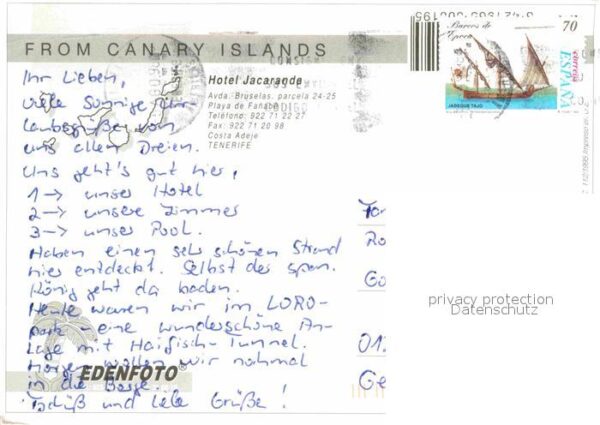 FROM CANARY ISLANDS
Hotel Jacaranda
Avda. Bruselas, parcela 24-25
Playa de Fañabé
Teléfono: 922 71 22 27
Fax: 922 71 20 98
Costa Adeje
TENERIFE
Barcos de
Epoca
70
correos
ESPAÑA
JABEQUE TAJO
Ihr Lieben,
viele sonnige Ur-
laubsgrüße von
uns allen Dreien.
Uns geht's gut hier,
1 → unser Hotel
2 → unsere Zimmer
3 → unser Pool.
Haben einen sehr schönen Strand
hier entdeckt. Selbst der span.
König geht da baden.
Heute waren wir im LORO-
park - eine wunderschöne An-
lage mit Haifisch-Tunnel.
wollen wir nochmal
in die Berge.
Tschüß und Grüße!
EDENFOTO®
privacy protection
Datenschutz